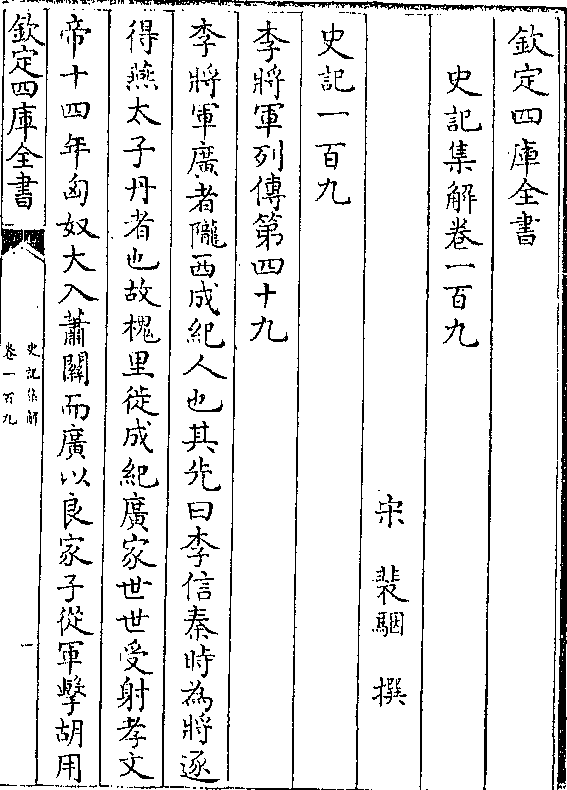 欽定四庫全書
史記集解卷一百九
宋 裴駰 撰
史記一百九
李將軍列傳第四十九
李將軍廣者隴西成紀人也其先曰李信秦時為將逐
得燕太子丹者也故槐里徙成紀廣家世世受射孝文
帝十四年匈奴大入蕭關而廣以良家子從軍擊胡用
欽定四庫全書
史記集解
卷一百九